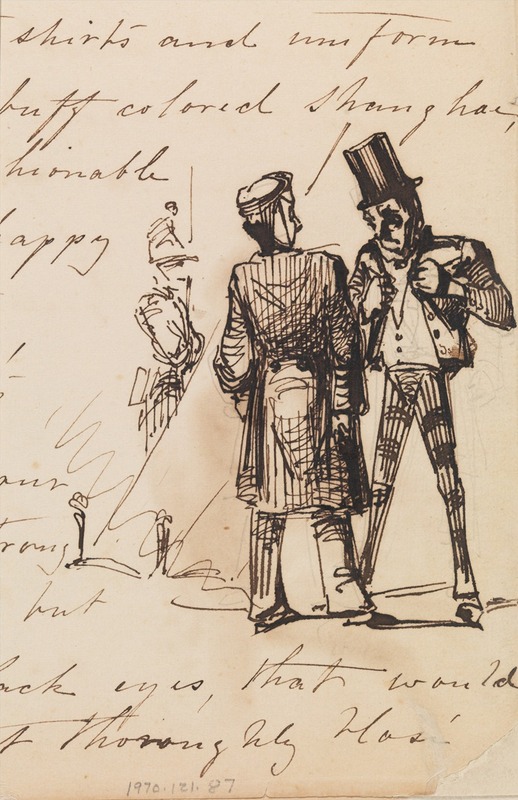 shirts and uniform
buff colored Shanghae,
hionable
happy
rong
but
ack eyes, that would
t thoroughly
1970.121.87